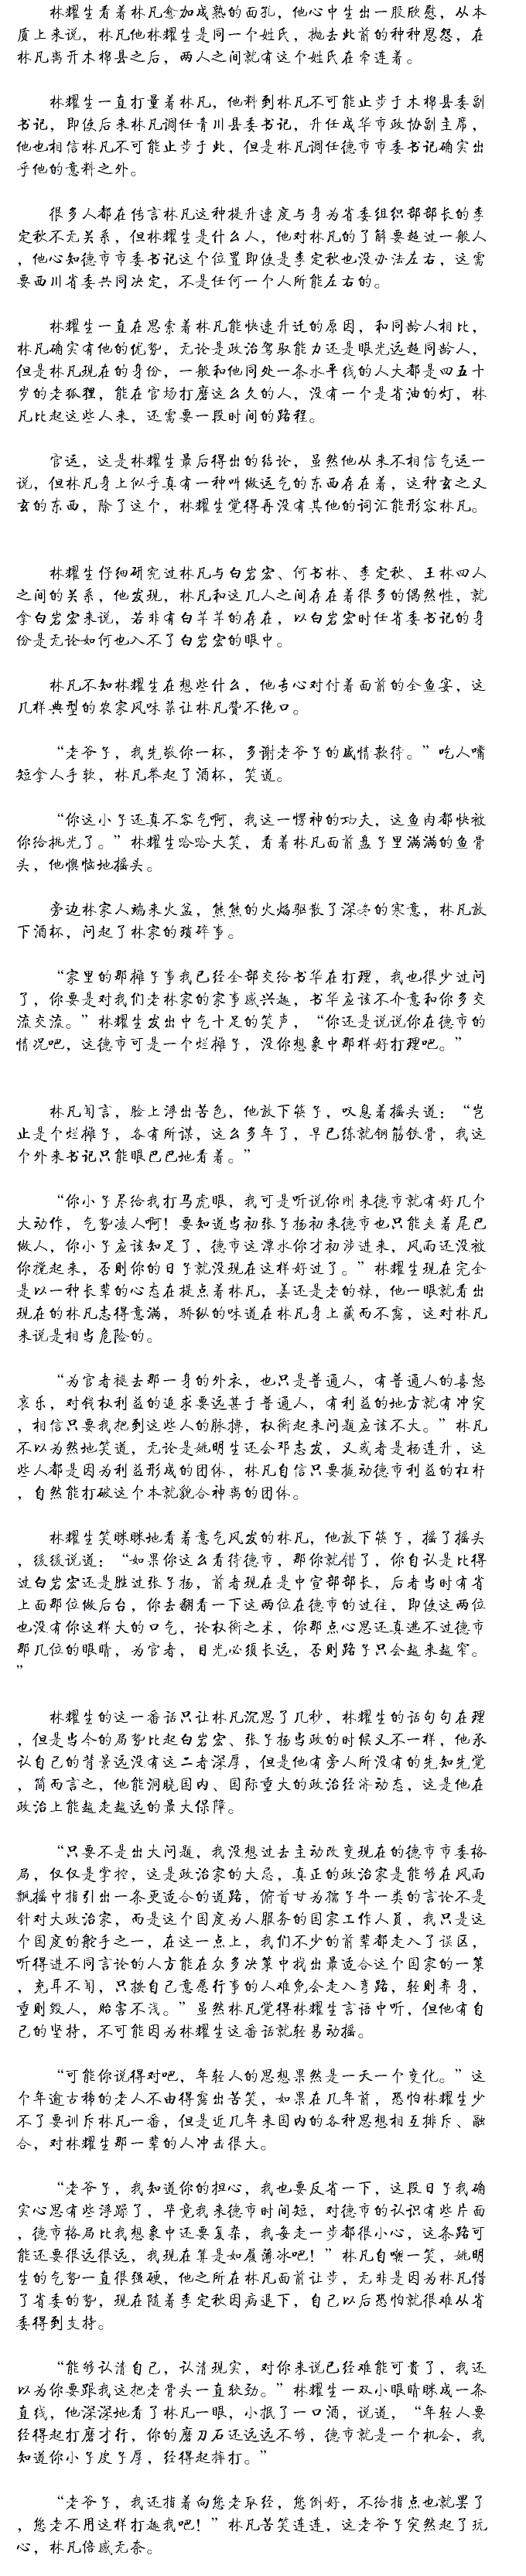 林耀生看着林凡愈加成熟的面孔，他心中生出一股欣慰，从本
质上来说，林凡他林耀生是同一个姓氏，抛去此前的种种恩怨，在
林凡离开木棉县之后，两人之间就有这个姓氏在牵连着。
林耀生一直打量着林凡，他料到林凡不可能止步于木棉县委副
书记，即使后来林凡调任青川县委书记，升任成华市政协副主席，
他也相信林凡不可能止步于此，但是林凡调任德市市委书记确实出
乎他的意料之外。
很多人都在传言林凡这种提升速度与身为省委组织部部长的李
定秋不无关系，但林耀生是什么人，他对林凡的了解要超过一般人
，他心知德市市委书记这个位置即使是李定秋也没办法左右，这需
要西川省委共同决定，不是任何一个人所能左右的。
林耀生一直在思索着林凡能快速升迁的原因，和同龄人相比，
林凡确实有他的优势，无论是政治驾驭能力还是眼光远超同龄人，
但是林凡现在的身份，一般和他同处一条水平线的人大都是四五十
岁的老狐狸，能在官场打磨这么久的人，没有一个是省油的灯，林
凡比起这些人来，还需要一段时间的路程。
官运，这是林耀生最后得出的结论，虽然他从来不相信气运一
说，但林凡身上似乎真有一种叫做运气的东西存在着，这种玄之又
玄的东西，除了这个，林耀生觉得再没有其他的词汇能形容林凡。
林耀生仔细研究过林凡与白岩宏、何书林、李定秋、王林四人
之间的关系，他发现，林凡和这几人之间存在着很多的偶然性，就
拿白岩宏来说，若非有白芊芊的存在，以白岩宏时任省委书记的身
份是无论如何也入不了白岩宏的眼中。
林凡不知林耀生在想些什么，他专心对付着面前的全鱼宴，这
几样典型的农家风味菜让林凡赞不绝口。
“老爷子，我先敬你一杯，多谢老爷子的盛情款待。”吃人嘴
短拿人手软，林凡举起了酒杯，笑道。
“你这小子还真不客气啊，我这一愣神的功夫，这鱼肉都快被
你给挑光了。”林耀生哈哈大笑，看着林凡面前盘子里满满的鱼骨
头，他懊恼地摇头。
旁边林家人端来火盆，熊熊的火焰驱散了深冬的寒意，林凡放
下酒杯，问起了林家的琐碎事。
“家里的那摊子事我已经全部交给书华在打理，我也很少过问
了，你要是对我们老林家的家事感兴趣，书华应该不介意和你多交
流交流。”林耀生发出中气十足的笑声，“你还是说说你在德市的
情况吧，这德市可是一个烂摊子，没你想象中那样好打理吧。”
林凡闻言，脸上浮出苦色，他放下筷子，叹息着摇头道：“岂
止是个烂摊子，各有所谋，这么多年了，早已练就钢筋铁骨，我这
个外来书记只能眼巴巴地看着。”
“你小子尽给我打马虎眼，我可是听说你刚来德市就有好几个
大动作，气势凌人啊！要知道当初张子杨初来德市也只能夹着尾巴
做人，你小子应该知足了，德市这潭水你才初涉进来，风雨还没被
你搅起来，否则你的日子就没现在这样好过了。”林耀生现在完全
是以一种长辈的心态在提点着林凡，姜还是老的辣，他一眼就看出
现在的林凡志得意满，骄纵的味道在林凡身上藏而不露，这对林凡
来说是相当危险的。
“为官者褪去那一身的外衣，也只是普通人，有普通人的喜怒
哀乐，对钱权利益的追求要远甚于普通人，有利益的地方就有冲突
，相信只要我把到这些人的脉搏，权衡起来问题应该不大。”林凡
不以为然地笑道，无论是姚明生还会邓志发，又或者是杨连升，这
些人都是因为利益形成的团体，林凡自信只要撬动德市利益的杠杆
，自然能打破这个本就貌合神离的团体。
林耀生笑眯眯地看着意气风发的林凡，他放下筷子，摇了摇头
，缓缓说道：“如果你这么看待德市，那你就错了，你自认是比得
过白岩宏还是胜过张子杨，前者现在是中宣部部长，后者当时有省
上面那位做后台，你去翻看一下这两位在德市的过往，即使这两位
也没有你这样大的口气，论权衡之术，你那点心思还真逃不过德市
那几位的眼睛，为官者，目光必须长远，否则路子只会越来越窄。
”
林耀生的这一番话只让林凡沉思了几秒，林耀生的话句句在理
，但是当今的局势比起白岩宏、张子杨当政的时候又不一样，他承
认自己的背景远没有这二者深厚，但是他有旁人所没有的先知先觉
，简而言之，他能洞晓国内、国际重大的政治经济动态，这是他在
政治上能越走越远的最大保障。
“只要不是出大问题，我没想过去主动改变现在的德市市委格
局，仅仅是掌控，这是政治家的大忌，真正的政治家是能够在风雨
飘摇中指引出一条更适合的道路，俯首甘为孺子牛一类的言论不是
针对大政治家，而是这个国度为人服务的国家工作人员，我只是这
个国度的舵手之一，在这一点上，我们不少的前辈都走入了误区，
听得进不同言论的人方能在众多决策中找出最适合这个国家的一策
，充耳不闻，只按自己意愿行事的人难免会走入弯路，轻则弃身，
重则毁人，贻害不浅。”虽然林凡觉得林耀生言语中听，但他有自
己的坚持，不可能因为林耀生这番话就轻易动摇。
“可能你说得对吧，年轻人的思想果然是一天一个变化。”这
个年逾古稀的老人不由得露出苦笑，如果在几年前，恐怕林耀生少
不了要训斥林凡一番，但是近几年来国内的各种思想相互排斥、融
合，对林耀生那一辈的人冲击很大。
“老爷子，我知道你的担心，我也要反省一下，这段日子我确
实心思有些浮躁了，毕竟我来德市时间短，对德市的认识有些片面
，德市格局比我想象中还要复杂，我每走一步都很小心，这条路可
能还要很远很远，我现在算是如履薄冰吧！”林凡自嘲一笑，姚明
生的气势一直很强硬，他之所在林凡面前让步，无非是因为林凡借
了省委的势，现在随着李定秋因病退下，自己以后恐怕就很难从省
委得到支持。
“能够认清自己，认清现实，对你来说已经难能可贵了，我还
以为你要跟我这把老骨头一直较劲。”林耀生一双小眼睛眯成一条
直线，他深深地看了林凡一眼，小抿了一口酒，说道，“年轻人要
经得起打磨才行，你的磨刀石还远远不够，德市就是一个机会，我
知道你小子皮子厚，经得起摔打。”
“老爷子，我还指着向您老取经，您倒好，不给指点也就罢了
，您老不用这样打趣我吧！”林凡苦笑连连，这老爷子突然起了玩
心，林凡倍感无奈。